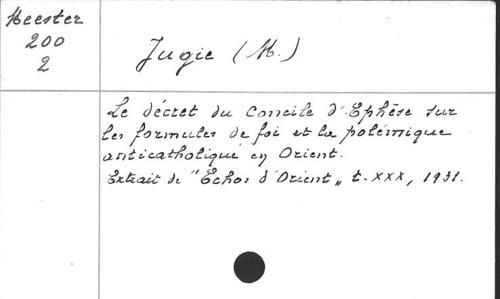 Heester
200
2
Jugie (M.)
Le décret du Concile d'Ephèse sur
les formules de foi et la polémique
anticatholique en Orient.
Extrait de "Echos d'Orient„ t. XXX, 1931.